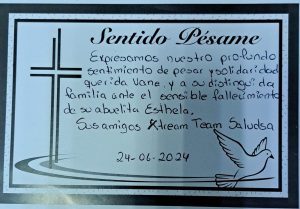 Sentido Pésame
Expresamos nuestro profundo
sentimiento de pesar y solidaridad
querida Vane, y a su distinguida
familia ante el sensible fallecimiento
de su abuelita Esthela.
Sus amigos Xtream Team Saludsa
24-06-2024